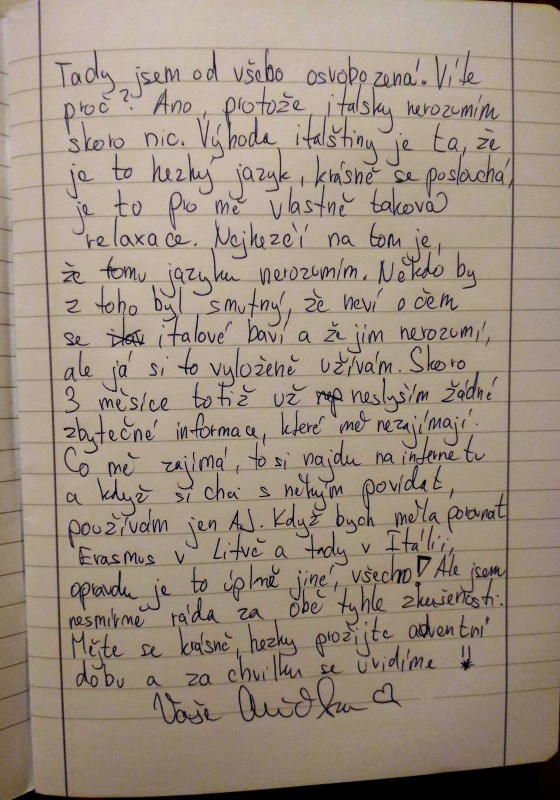 Tady jsem od všeho osvobozená. Víte
proč? Ano, protože italsky nerozumím
skoro nic. Výhoda italštiny je ta, že
je to hezký jazyk, krásně se poslouchá,
je to pro mě vlastně taková
relaxace. Nejhezčí na tom je,
že tomu jazyku nerozumím. Někdo by
z toho byl smutný, že neví o čem
se italové baví a že jim nerozumí,
ale já si to vyloženě užívám. Skoro
3 měsíce totiž už neslyším žádné
zbytečné informace, které mě nezajímají.
Co mě zajímá, to si najdu na internetu
a když si chci s někým povídat,
používám jen AJ. Když bych měla porovnat
Erasmus v Litvě a tady v Itálii,
opravdu je to úplně jiné, všecho! Ale jsem
nesmírně ráda za obě tyhle zkušenosti.
Mějte se krásně, hezky prožijte adventní
dobu a za chvilku se uvidíme !!
Vaše